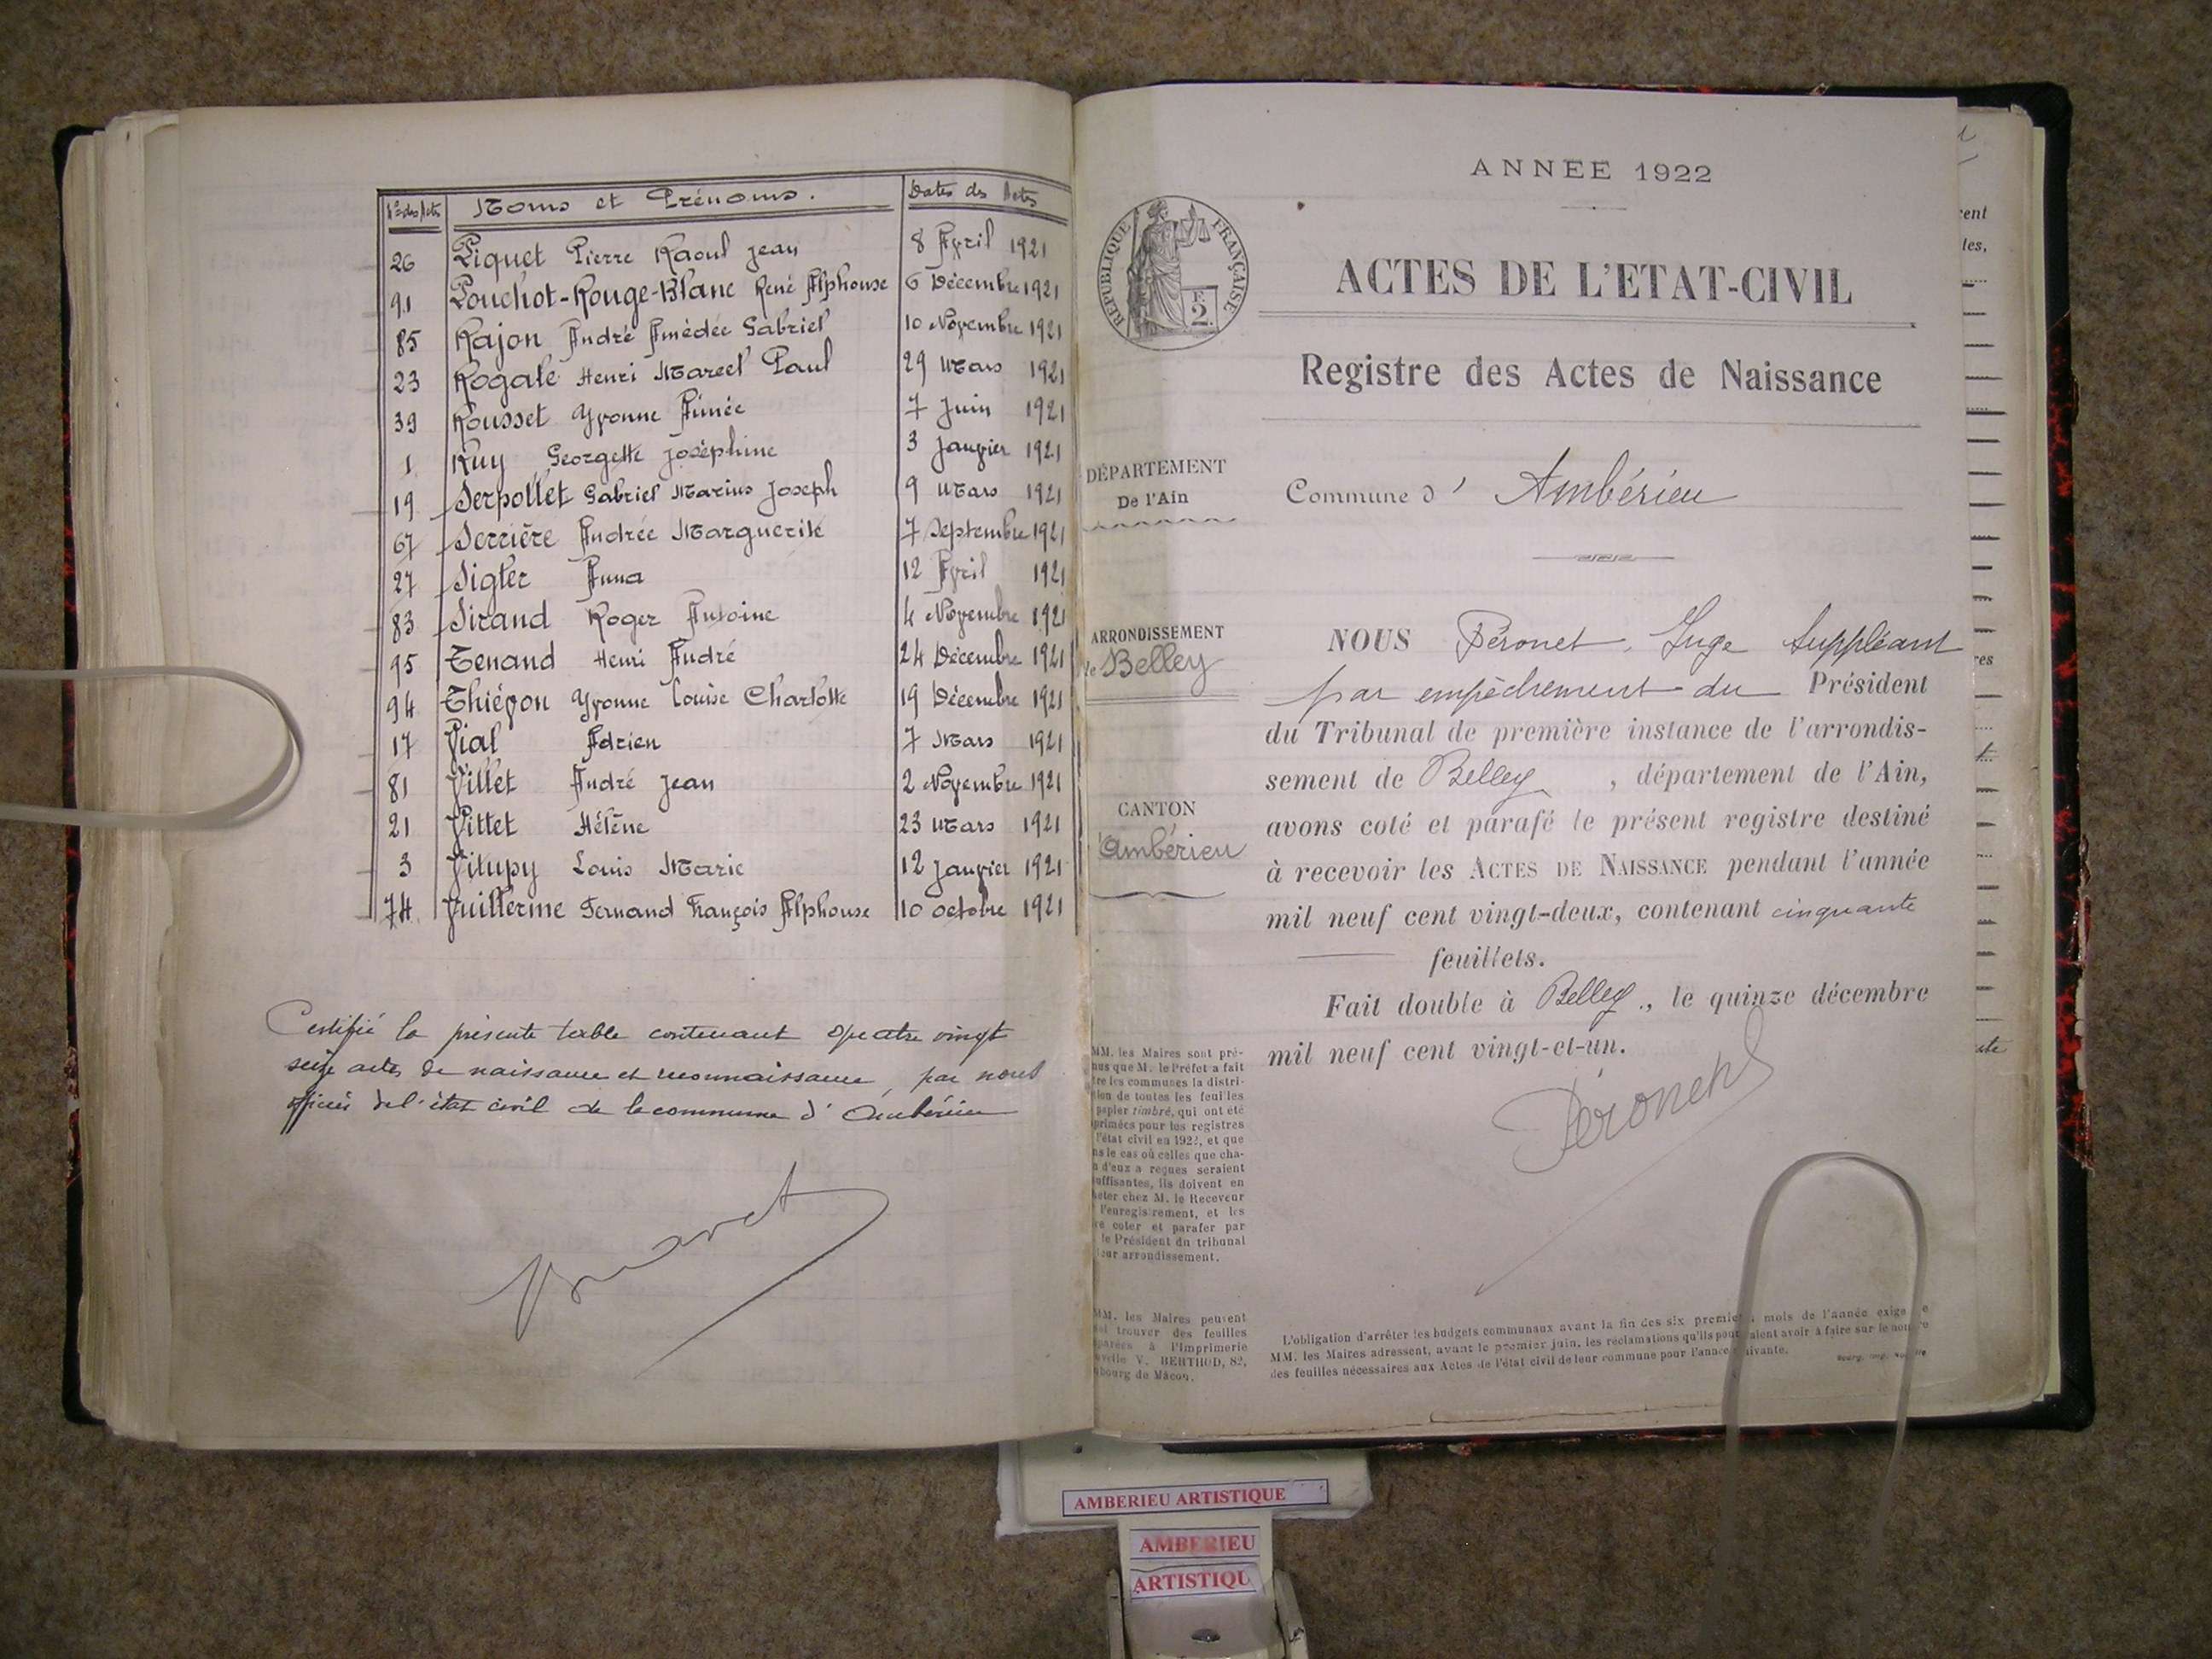 Nos des Actes Noms et Prénoms. Dates des Actes
26 Piquet Pierre Raoul Jean 8 Avril 1921
91 Pouchot-Rouge-Blanc René Alphonse 6 Décembre 1921
85 Rajon André Amédée Gabriel 10 Novembre 1921
23 Rogale Henri Marcel Paul 29 Mars 1921
39 Rousset Yvonne Aimée 7 Juin 1921
1 Ruy Georgette Joséphine 3 Janvier 1921
19 Serpollet Gabriel Marius Joseph 9 Mars 1921
67 Serrière Andrée Marguerite 7 Septembre 1921
27 Sigler Anna 12 Avril 1921
83 Sirand Roger Antoine 4 Novembre 1921
95 Tenand Henri André 24 Décembre 1921
94 Thiévon Yvonne Louise Charlotte 19 Décembre 1921
17 Vial Adrien 7 Mars 1921
81 Villet André Jean 2 Novembre 1921
21 Vittet Hélène 23 Mars 1921
3 Vitupy Louis Marie 12 Janvier 1921
74 Vuillerme Fernand François Alphonse 10 octobre 1921
Certifié la présente table contenant quatre vingt
seize actes de naissance et reconnaissance, par nous
officier de l'état civil de la commune d'Ambérieu
ANNEE 1922
RÉPUBLIQUE FRANÇAISE
2 F.
ACTES DE L'ETAT-CIVIL
Registre des Actes de Naissance
DÉPARTEMENT
De l'Ain
Commune d' Ambérieu
ARRONDISSEMENT
de Belley
CANTON
d'Ambérieu
NOUS Péronet, Juge Suppléant
par empêchement du Président
du Tribunal de première instance de l'arrondis-
sement de Belley, département de l'Ain,
avons coté et parafé le présent registre destiné
à recevoir les ACTES DE NAISSANCE pendant l'année
mil neuf cent vingt-deux, contenant cinquante
feuillets.
Fait double à Belley, le quinze décembre
mil neuf cent vingt-et-un.
Péronet
MM. les Maires sont pré-
nus que M. le Préfet a fait
tre les communes la distri-
tion de toutes les feuilles
papier timbré, qui ont été
primées pour les registres
l'état civil en 1922, et que
ns le cas où celles que cha-
n d'eux a reçues seraient
uffisantes, ils doivent en
heter chez M. le Receveur
l'enregistrement, et les
re coter et parafer par
le Président du tribunal
leur arrondissement.
MM. les Maires peuvent
ssi trouver des feuilles
parées à l'Imprimerie
uvelle V. BERTHOD, 82,
ubourg de Mâcon.
L'obligation d'arrêter les budgets communaux avant la fin des six premiers mois de l'année exige
MM. les Maires adressent, avant le premier juin, les réclamations qu'ils pourraient avoir à faire sur le nombre
des feuilles nécessaires aux Actes de l'état civil de leur commune pour l'année suivante.
AMBERIEU ARTISTIQUE
AMBERIEU
ARTISTIQU